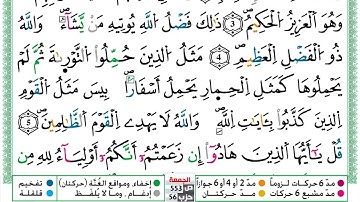 وَهُوَ ٱلْعَزِيزُ ٱلْحَكِيمُ ③ ذَٰلِكَ فَضْلُ ٱللَّهِ يُوتِيهِ مَنْ يَّشَآءُ وَٱللَّهُ
ذُو ٱلْفَضْلِ ٱلْعَظِيمِ ④ مَثَلُ ٱلذِينَ حُمِّلُوا۟ ٱلتَّوْر۪يٰةَ ثُمَّ لَمْ
يَحْمِلُوهَا كَمَثَلِ ٱلْحِمَارِ يَحْمِلُ أَسْفَاراً بِيسَ مَثَلُ ٱلْقَوْمِ
ٱلذِينَ كَذَّبُوا۟ بِـَٔايَٰتِ ٱللَّهِ وَٱللَّهُ لَا يَهْدِے ٱلْقَوْمَ ٱلظَّٰلِمِينَ ⑤
قُلْ يَٰٓأَيُّهَا ٱلذِينَ هَادُوٓا۟ إِن زَعَمْتُمُۥٓ أَنَّكُمُۥٓ أَوْلِيَآءُ لِلهِ مِن
مدّ 6 حركات لزوماً مدّ 2 أو 4 أو 6 جوازاً الجمعة إخفاء، ومواقع الغُنَّة (حركتان) تفخيم
مدّ مشبع 6 حركات مدّ حركتان ص 553 حزب 56 إدغام، وما لا يُلفظ قلقلة